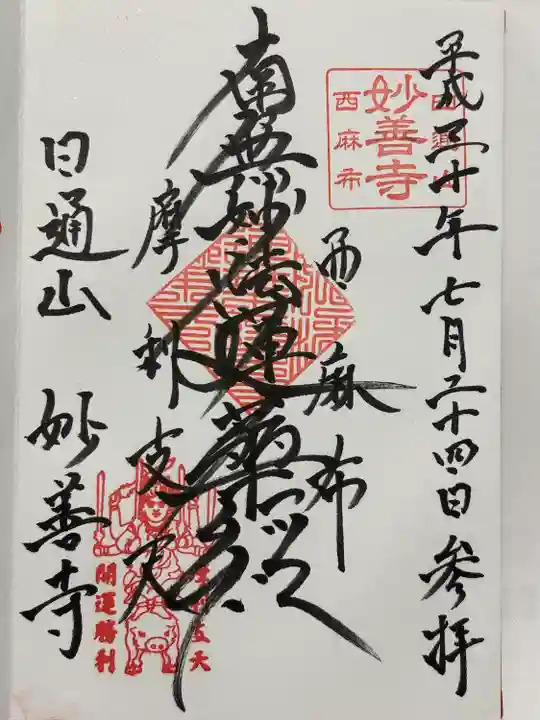 平成三十年七月二十四日参拝
日通山
妙善寺
西麻布
西麻布
南無妙法蓮華経
摩利支天
摩利支天
開運勝利
日通山 妙善寺